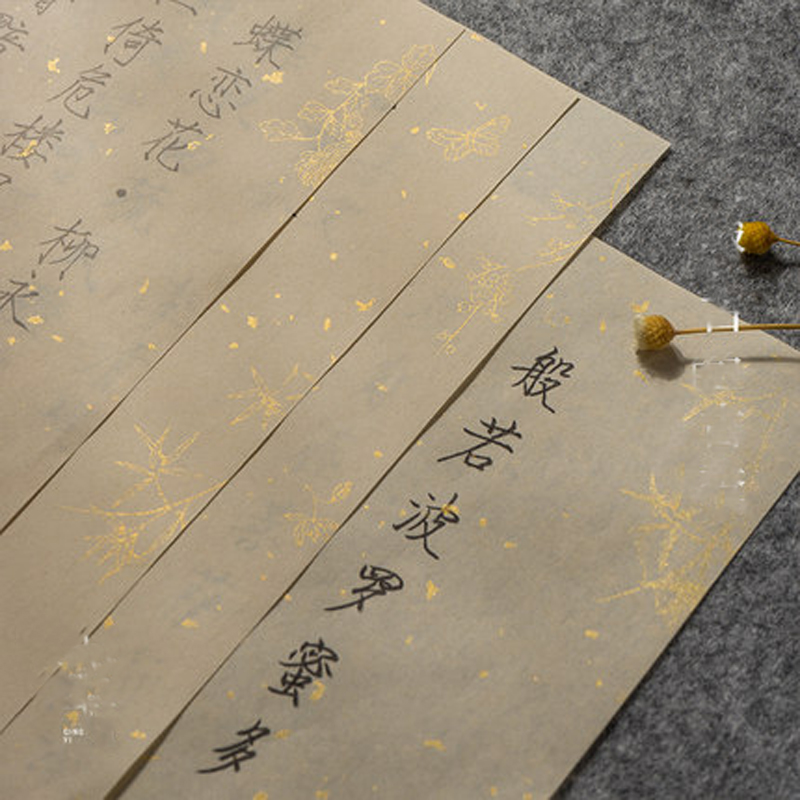 般若波罗蜜多
蝶恋花·柳永
倚危楼
CING
YI